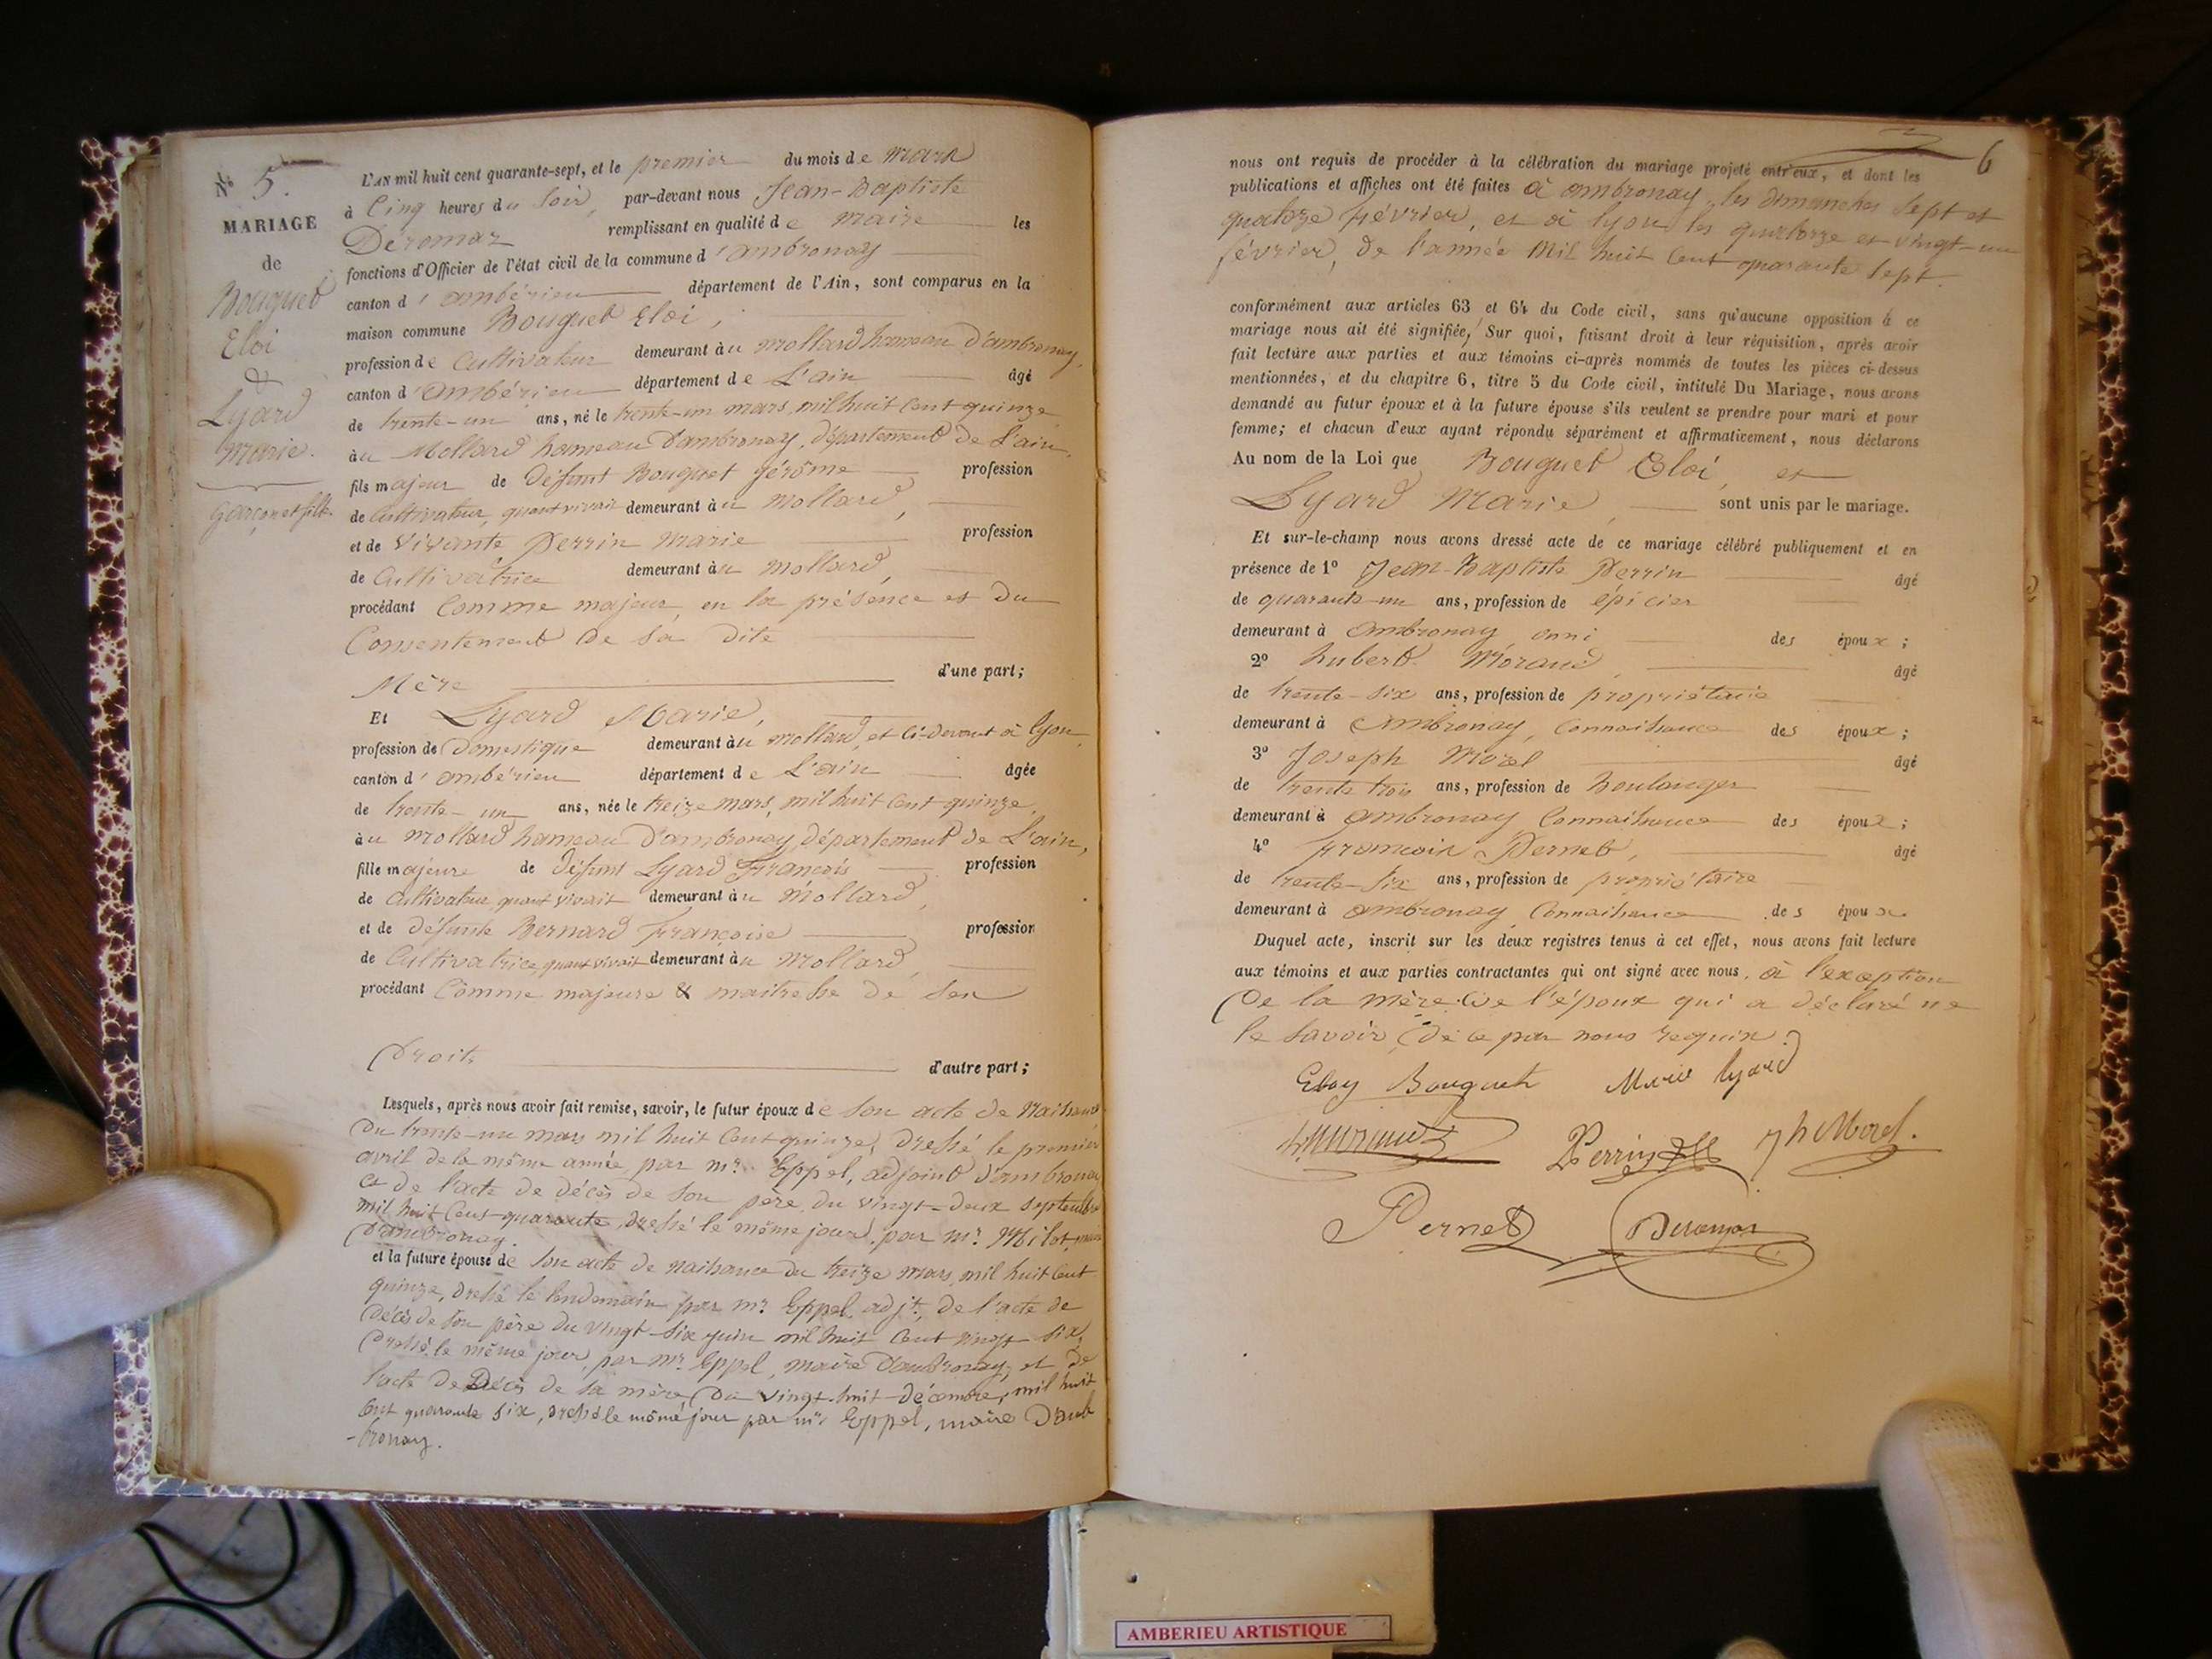 N° 5.
MARIAGE
de
Bouquet
Eloi
&
Lyard
Marie.
garçon et fille.
L'AN mil huit cent quarante-sept, et le premier du mois de mars
à Cinq heures du Soir, par-devant nous Jean-Baptiste
Deromaz remplissant en qualité de maire les
fonctions d'Officier de l'état civil de la commune d'ambronay
canton d'ambérieu département de l'Ain, sont comparus en la
maison commune Bouquet Eloi,
profession de Cultivateur demeurant àu mollard hameau d'ambronay,
canton d'ambérieu département de L'ain âgé
de trente-un ans, né le trente-un mars, mil huit Cent quinze
àu Mollard hameau d'ambronay, département de L'ain,
fils majeur de défunt Bouquet gérôme profession
de Cultivateur, quant vivait demeurant àu mollard,
et de vivante Perrin Marie profession
de Cultivatrice demeurant àu mollard,
procédant Comme majeur, en la présence et du
Consentement de Sa dite
Mère d'une part;
Et Lyard Marie,
profession de Domestique demeurant àu mollard, et Ci-devant à lyon,
canton d'ambérieu département de L'ain âgée
de trente-un ans, née le treize mars, mil huit Cent quinze,
àu mollard hameau d'ambronay, département de L'ain,
fille majeure de défunt Lyard François profession
de Cultivateur quant vivait demeurant àu Mollard,
et de défunte Bernard Françoise profession
de Cultivatrice, quant vivait demeurant àu Mollard,
procédant Comme majeure & maitresse de Ses
Droits d'autre part;
Lesquels, après nous avoir fait remise, savoir, le futur époux de Son acte de naissance
du trente-un mars mil huit Cent quinze, dressé le premier
avril de la même année par mr. Eppel, adjoint d'ambronay
et de l'acte de décès de Son père, du vingt-deux septembre
mil huit Cent quarante, dressé le même jour, par mr. Milot, maire
d'ambronay.
et la future épouse de Son acte de naissance du treize mars, mil huit Cent
quinze, dressé le lendemain par mr. Eppel, adjt., de l'acte de
décès de Son père du vingt-six juin mil huit Cent vingt-six,
dressé le même jour, par mr. Eppel, maire d'ambronay, et de
l'acte de Décès de Sa mère, du vingt-huit décembre, mil huit
Cent quarante six, dressé le même jour par mr. Eppel, maire d'amb
-ronay.
6
nous ont requis de procéder à la célébration du mariage projeté entr'eux, et dont les
publications et affiches ont été faites à ambronay, les dimanches Sept et
quatorze février, et à lyon les quatorze et vingt-un
février, de l'année Mil huit Cent quarante Sept.
conformément aux articles 63 et 64 du Code civil, sans qu'aucune opposition à ce
mariage nous ait été signifiée, Sur quoi, faisant droit à leur réquisition, après avoir
fait lecture aux parties et aux témoins ci-après nommés de toutes les pièces ci-dessus
mentionnées, et du chapitre 6, titre 5 du Code civil, intitulé Du Mariage, nous avons
demandé au futur époux et à la future épouse s'ils veulent se prendre pour mari et pour
femme; et chacun d'eux ayant répondu séparément et affirmativement, nous déclarons
Au nom de la Loi que Bouquet Eloi, et
Lyard Marie, sont unis par le mariage.
Et sur-le-champ nous avons dressé acte de ce mariage célébré publiquement et en
présence de 1° Jean-Baptiste Perrin âgé
de quarante-un ans, profession de épicier
demeurant à ambronay ami des époux;
2° hubert Moraud, âgé
de trente-six ans, profession de propriétaire
demeurant à ambronay, Connaissance des époux;
3° Joseph Morel âgé
de trente trois ans, profession de Boulanger
demeurant à ambronay Connaissance des époux;
4° François Pernet, âgé
de trente-six ans, profession de propriétaire
demeurant à ambronay Connaissance des époux
Duquel acte, inscrit sur les deux registres tenus à cet effet, nous avons fait lecture
aux témoins et aux parties contractantes qui ont signé avec nous, à l'exception
de la mère de l'époux qui a déclaré ne
le Savoir, de ce par nous requix.
Eloy Bouquet Marie lyard
Perrin jh Morel.
Pernet Deromaz
AMBERIEU ARTISTIQUE